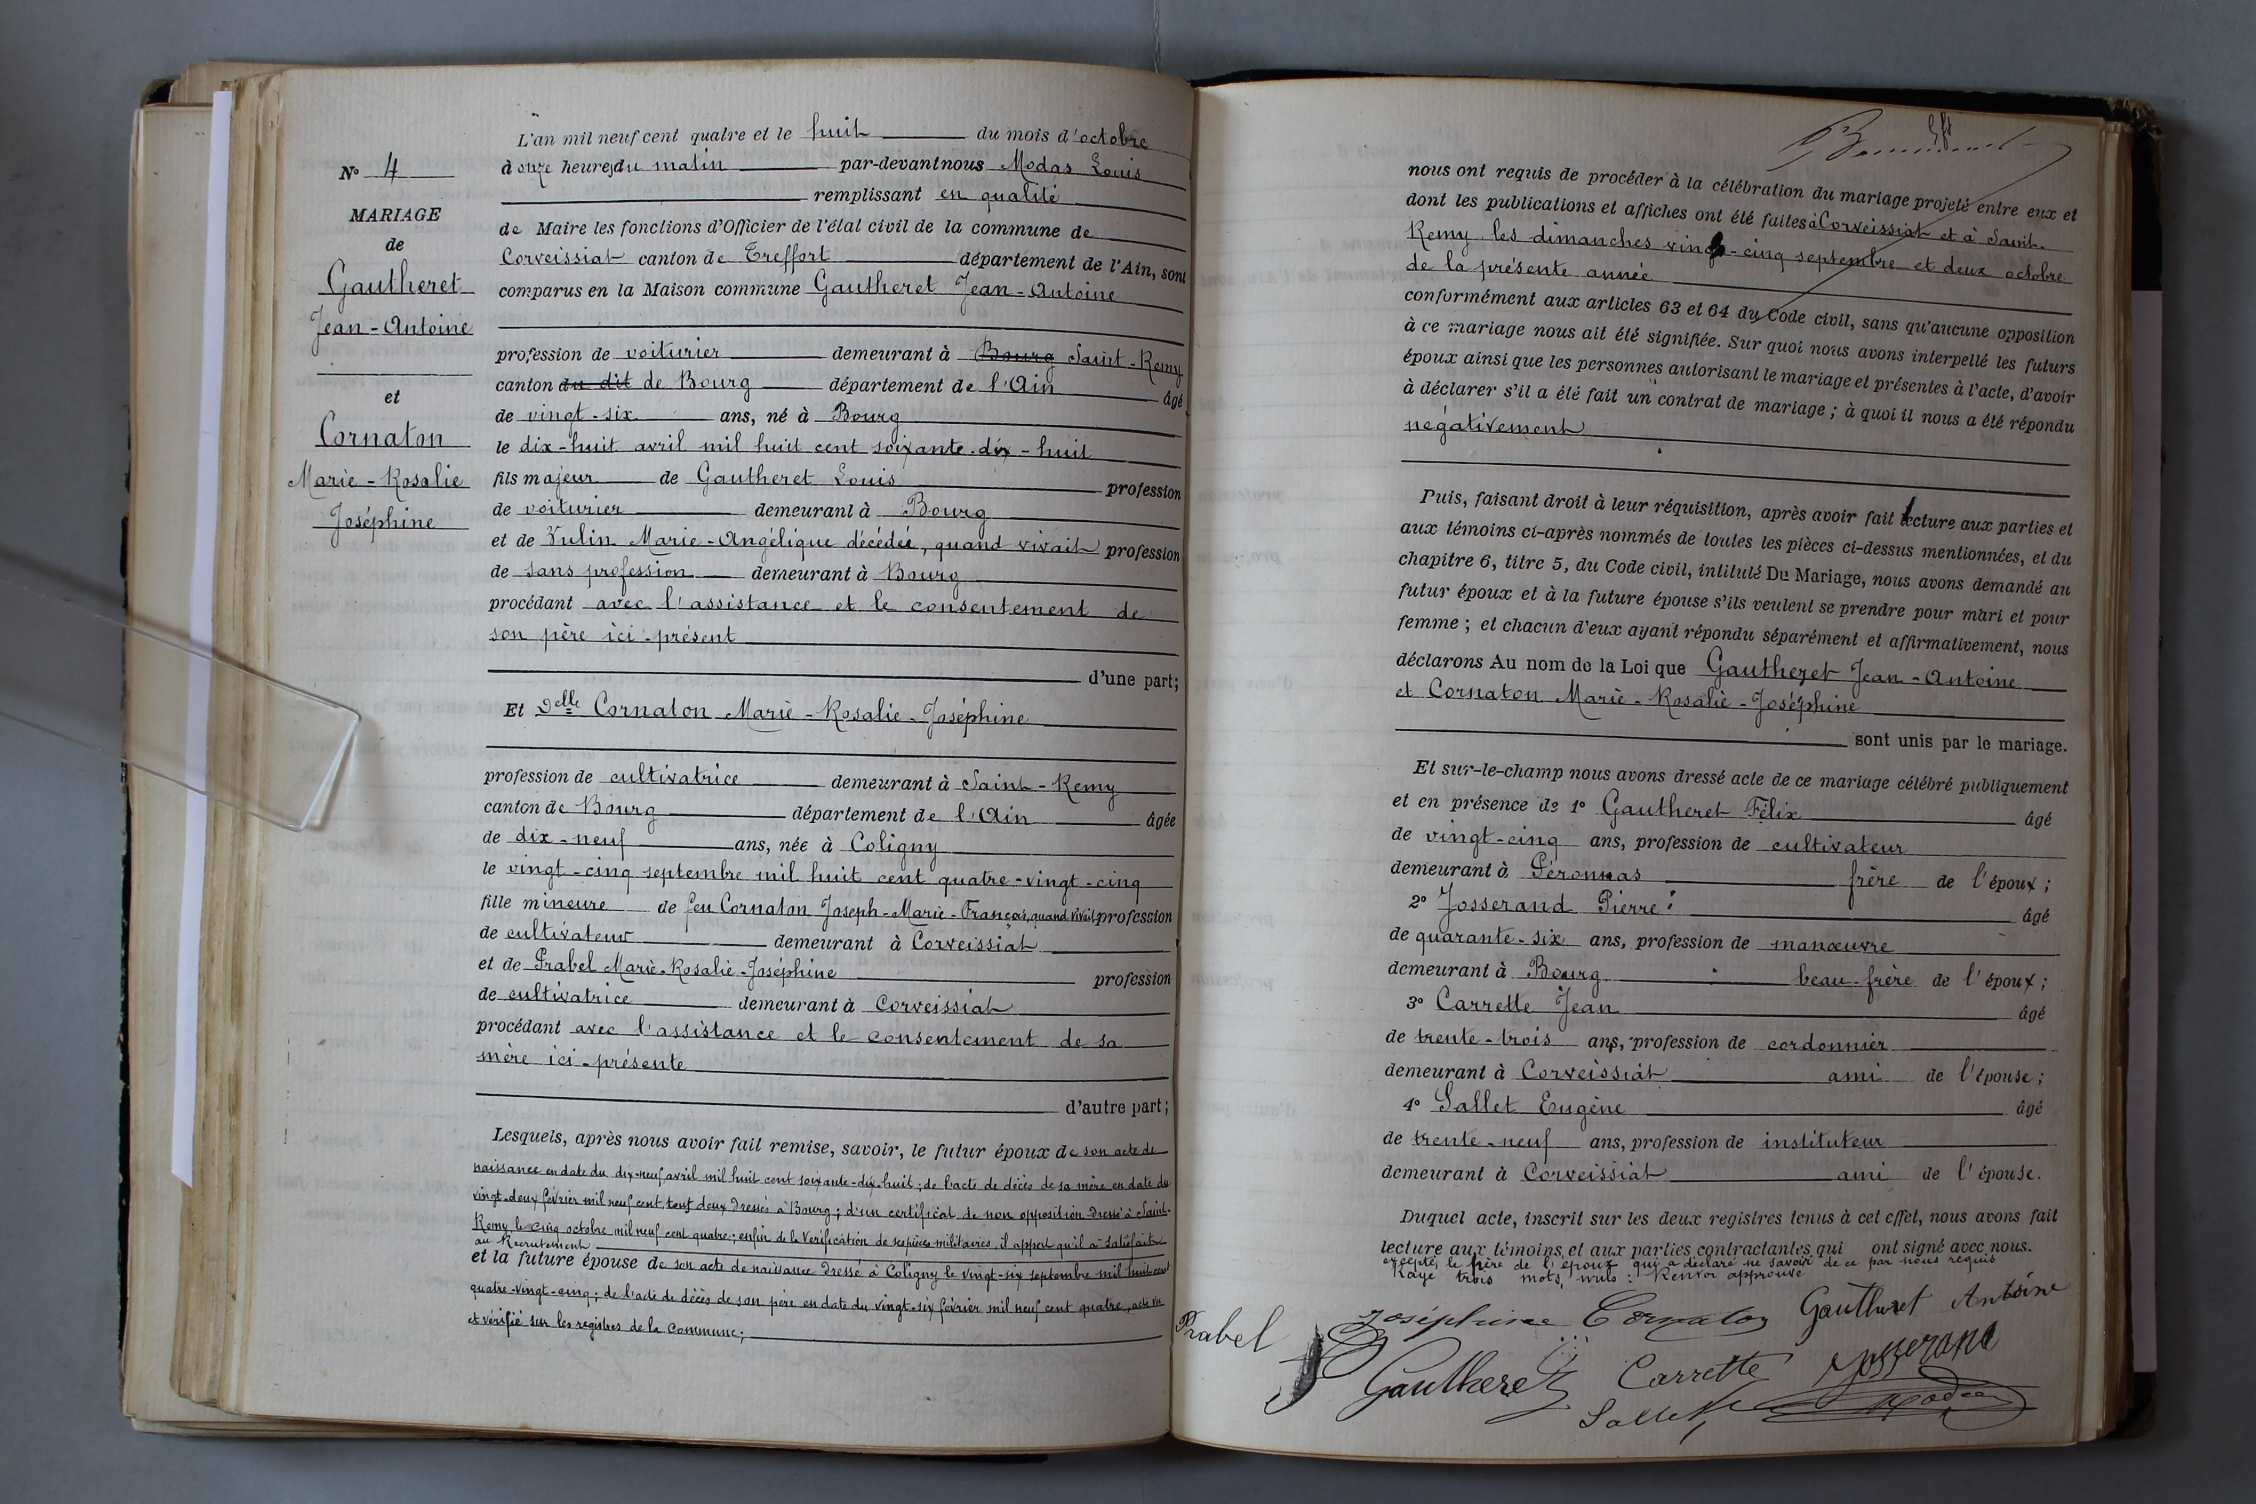 N° 4
MARIAGE
de
Gautheret
Jean-Antoine
et
Cornaton
Marie-Rosalie
Joséphine
L'an mil neuf cent quatre et le huit du mois d'octobre
à onze heures du matin par-devant nous Modas Louis
remplissant en qualité
de Maire les fonctions d'Officier de l'état civil de la commune de
Corveissiat canton de Treffort département de l'Ain, sont
comparus en la Maison commune Gautheret Jean-Antoine
profession de voiturier demeurant à Bourg Saint-Remy
canton du dit de Bourg département de l'Ain âgé
de vingt-six ans, né à Bourg
le dix-huit avril mil huit cent soixante-dix-huit
fils majeur de Gautheret Louis profession
de voiturier demeurant à Bourg
et de Vulin Marie-Angélique décédée, quand vivait profession
de sans profession demeurant à Bourg
procédant avec l'assistance et le consentement de
son père ici-présent
d'une part;
Et Delle Cornaton Marie-Rosalie-Joséphine
profession de cultivatrice demeurant à Saint-Remy
canton de Bourg département de l'Ain âgée
de dix-neuf ans, née à Coligny
le vingt-cinq septembre mil huit cent quatre-vingt-cinq
fille mineure de feu Cornaton Joseph-Marie-François, quand vivait profession
de cultivateur demeurant à Corveissiat
et de Prabel Marie-Rosalie-Joséphine profession
de cultivatrice demeurant à Corveissiat
procédant avec l'assistance et le consentement de sa
mère ici-présente
d'autre part;
Lesquels, après nous avoir fait remise, savoir, le futur époux de son acte de
naissance en date du dix-neuf avril mil huit cent soixante-dix-huit; de l'acte de décès de sa mère en date du
vingt-deux février mil neuf cent, tous deux dressés à Bourg; d'un certificat de non opposition dressé à Saint-
Remy le cinq octobre mil neuf cent quatre; enfin de la vérification de ses pièces militaires, il appert qu'il a satisfait
au Recrutement
et la future épouse de son acte de naissance dressé à Coligny le vingt-six septembre mil huit cent
quatre-vingt-cinq; de l'acte de décès de son père en date du vingt-six février mil neuf cent quatre, acte vu
et vérifié sur les registres de la commune;
nous ont requis de procéder à la célébration du mariage projeté entre eux et
dont les publications et affiches ont été faites à Corveissiat et à Saint-
Remy les dimanches vingt-cinq septembre et deux octobre
de la présente année
conformément aux articles 63 et 64 du Code civil, sans qu'aucune opposition
à ce mariage nous ait été signifiée. Sur quoi nous avons interpellé les futurs
époux ainsi que les personnes autorisant le mariage et présentes à l'acte, d'avoir
à déclarer s'il a été fait un contrat de mariage; à quoi il nous a été répondu
négativement
Puis, faisant droit à leur réquisition, après avoir fait lecture aux parties et
aux témoins ci-après nommés de toutes les pièces ci-dessus mentionnées, et du
chapitre 6, titre 5, du Code civil, intitulé Du Mariage, nous avons demandé au
futur époux et à la future épouse s'ils veulent se prendre pour mari et pour
femme; et chacun d'eux ayant répondu séparément et affirmativement, nous
déclarons Au nom de la Loi que Gautheret Jean-Antoine
et Cornaton Marie-Rosalie-Joséphine
sont unis par le mariage.
Et sur-le-champ nous avons dressé acte de ce mariage célébré publiquement
et en présence de 1° Gautheret Félix âgé
de vingt-cinq ans, profession de cultivateur
demeurant à Péronnas frère de l'époux;
2° Josserand Pierre âgé
de quarante-six ans, profession de manœuvre
demeurant à Bourg beau-frère de l'époux;
3° Carrette Jean âgé
de trente-trois ans, profession de cordonnier
demeurant à Corveissiat ami de l'épouse;
4° Sallet Eugène âgé
de trente-neuf ans, profession de instituteur
demeurant à Corveissiat ami de l'épouse.
Duquel acte, inscrit sur les deux registres tenus à cet effet, nous avons fait
lecture aux témoins et aux parties contractantes qui ont signé avec nous.
excepté le père de l'époux qui a déclaré ne savoir de ce par nous requis
Rayé trois mots nuls: Renvoi approuvé
Prabel Joséphine Cornaton Gautheret Antoine
Gautheret Carrette Josserand
Sallet Modas